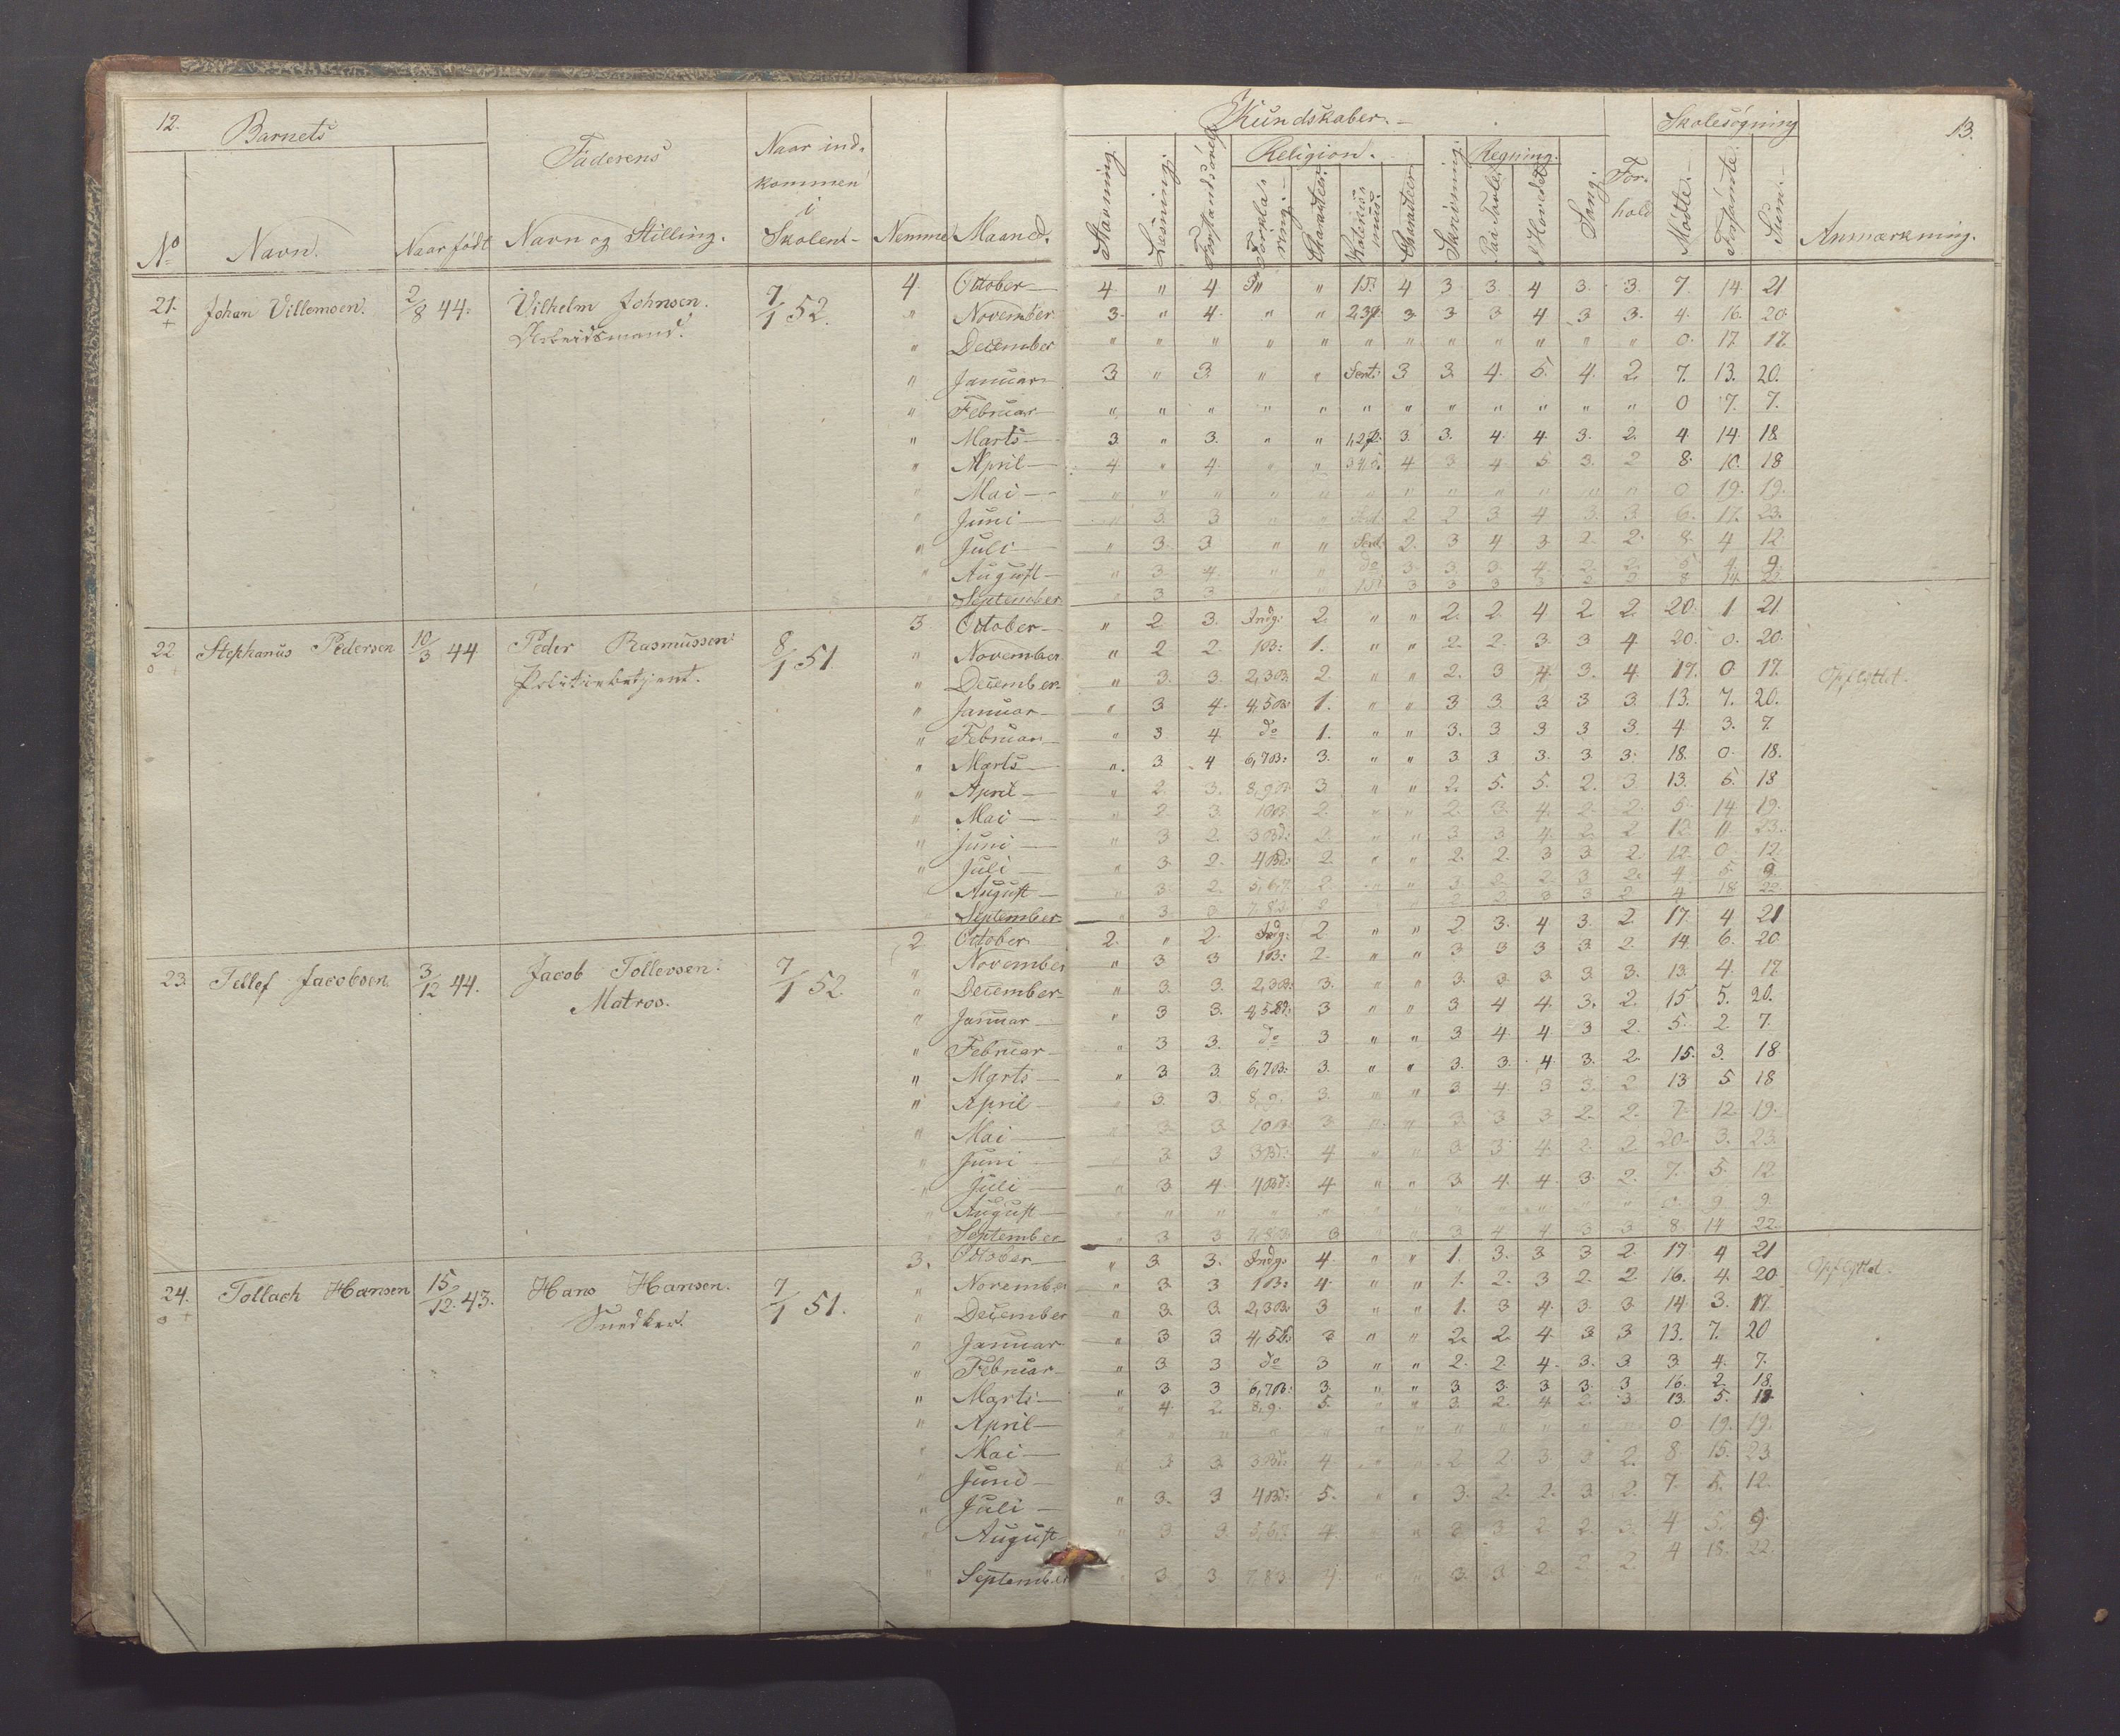 12.
Barnets
Faderens
Naar ind-
kommen
i
Skolen
Nemme
Maaned.
No
Navn.
Naar født
Navn og Stilling.
Kundskaber.
Skolesøgning
13.
Stavning.
Læsning.
Forstandsøvelse
Religion.
Forklaring.
Character.
Katekismus
Character.
Skrivning.
Regning.
Paa Tavle.
I Hovedet
Sang.
Forhold
Mødte.
Forsømte.
Sum.
Anmærkning.
21. Johan Villemsen. 2/8 44. Vilhelm Johnsen. 7/1 52. 4 October 4. " 4 " " 4 3 3. 4 3. 3. 7. 14. 21
Arbeidsmand.
" November 3. " 4. " " 3 3 3 4 3 3. 4. 16. 20
" December " " " " " " " " " " " " 0. 17 17.
" Januar 3 " 3. " " Sent: 3 3. 4. 5. 4. 2. 7. 13. 20.
" Februar " " " " " " " " " " " " 0 7. 7.
" Marts 3. " 3. " " 3. 3. 4. 4. 3. 2. 4. 14. 18.
" April 4. " 4. " " 4 3 4 5 3. 2 8. 10. 18
" Mai " " " " " " " " " " " " 0 19. 19.
" Juni " 3. 3 " " 2 2 3 4 3. 3. 6. 17. 23.
" Juli " 3. 3 " " Sent 2. 3 4 3 2. 2. 8. 4 12
" August " 3. 4. " " do 3. 3. 3. 4. 2. 2. 5 4. 9.
September " 3 3 3 3 3 3 8 14
22 Stephanus Pedersen 10/3 44 Peder Rasmussen 8/1 51 3. October " 2 3. Indg: 2. " " 2. 2. 4 2 2. 20. 1 21.
Politiebetjent.
" November " 2 2. 1B: 1. " " 2. 2. 3. 3 4 20. 0. 20.
" December " 3. 3. 2,3B. 2. " " 2. 3 4. 3. 4. 17. 0 17. Opflyttet.
" Januar " 3 4. 4,5B: 1. " " 3 3. 3 3 3. 13. 7. 20.
" Februar " 3 4. do 1. " " 3. 3 3 3 3. 4 3. 7.
" Marts " 3. 4 6,7B: 3. " " 3. 3. 3. 3. 3. 18. 0. 18.
" April " 2. 3. 8,9B. 3 " " 2. 5. 5. 2. 3. 13. 5. 18
" Mai " 2. 3. 10B. 2. " " 2. 3. 4. 2. 2. 5. 14. 19.
" Juni " 3 2. 3Bd: 2. " " 3. 3 4. 2. 2 12. 11. 23.
" Juli " 3. 2. 4Bd: 2. " " 2. 2. 3 3. 2. 12. 0. 12.
August " 3. 2. 5,6,7. 2. " " 3. 2. 2. 3. 2. 4. 5. 9.
September " 3. 3. 3 3 2 4 18 22
23. Tellef Jacobsen. 3/12 44. Jacob Tollevsen. 7/1 52 2 October 2. " 2. Indg: 2 " " 2 3. 4 3. 2. 17. 4 21
Matros.
" November " 3 3 1B: 2. " " 3 3 3 3. 2. 14. 6. 20.
" December " 3. 3. 2,3B: 3. " " 3. 3. 3. 3. 3. 13. 4. 17
" Januar " 3 3. 4,5Bd: 3 " " 3 4 4. 3. 2. 15 5. 20.
" Februar " 3 3. do 3 " " 3. 4 4 3 2. 5. 2. 7.
" Marts " 3 3. 6,7B: 3. " " 3. 3. 4. 3. 2. 15. 3. 18.
" April " 3. 3. 8,9. 3. " " 3 4. 3 3. 2 13 5 18
" Mai " 3. 3. 10B: 3 " " 3. 3. 3 2. 2. 7. 12. 19.
" Juni " 3. 3 3Bd: 4 " " 3 3 4. 2. 2 20. 3. 23.
" Juli " 3 4. 4Bd: 4 " " 3. 4. 4. 3. 2. 7. 5. 12.
" August " " " " " " " " " " " " 0. 9. 9.
September " 3 3 7,8B 3 " " 3 4 4 3 3 8. 14 22.
24. Tollach Hansen 15/12 43. Hans Hansen. 7/1 51. 3. October " 3 3. Indg: 4 " " 1. 3. 3 3 2. 17. 4 21 Opflyttet.
Snedker.
" November " 3. 3 1B: 4. " " 1. 2. 3 2. 2. 16. 4. 20
" December " 3. 3. 2,3B. 3 " " 1. 3 4. 3. 3. 14. 3. 17.
" Januar " 3 3 4,5B. 3 " " 2. 2. 4. 3 3 13. 7. 20
" Februar " 3 3 do 3 " " 2. 2. 4. 3. 3. 3. 4. 7.
" Marts " 3 3 6,7B: 3. " " 3 3. 3. 3. 3 16. 2. 18.
" April " 4. 2. 8,9. 5. " " 3. 2. 4. 2. 3 13. 5. 18
" Mai " " " " " " " " " " " " 0. 19. 19.
Juni " 3 3. 3Bd: 4 " " 2 2 3 3. 2. 8. 15. 23
" Juli " 3. 3 4Bd: 5. " " 3. 2. 2. 3. 2. 7. 5. 12.
" August " 3. 3. 5,6,7 4. " " 3 3 2 2. 3. 4 5. 9.
September " 3. 3. 7,8B 4. " " 3. 3 2. 2. 2. 4 18. 22.